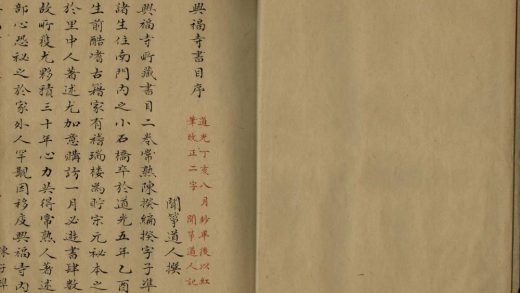 興福寺書目序
道光丁亥八月鈔畢後以紅
筆改正二字 聞箏道人記
聞箏道人撰
興福寺所藏書目二卷常熟陳揆編揆字子準
諸生住南門內之小石橋卒於道光五年乙酉
生前酷嗜古籍家有稽瑞樓為貯宋元祕本之
於里中人著述尤加意購訪一月必遊書肆數
故所獲尤夥積三十年心力共得常熟人著述
部心恐祕之於家外人罕覯因移庋興福寺內
陳子準